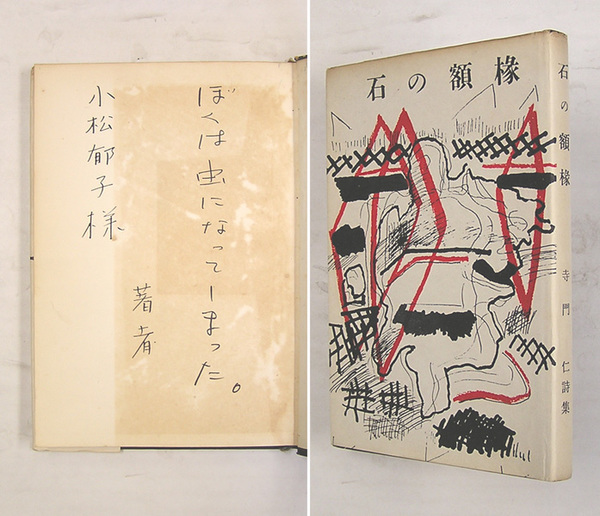 ぼくは虫になってしまった。
著者
小松郁子様
石の額椽
石の額椽
寺門仁詩集